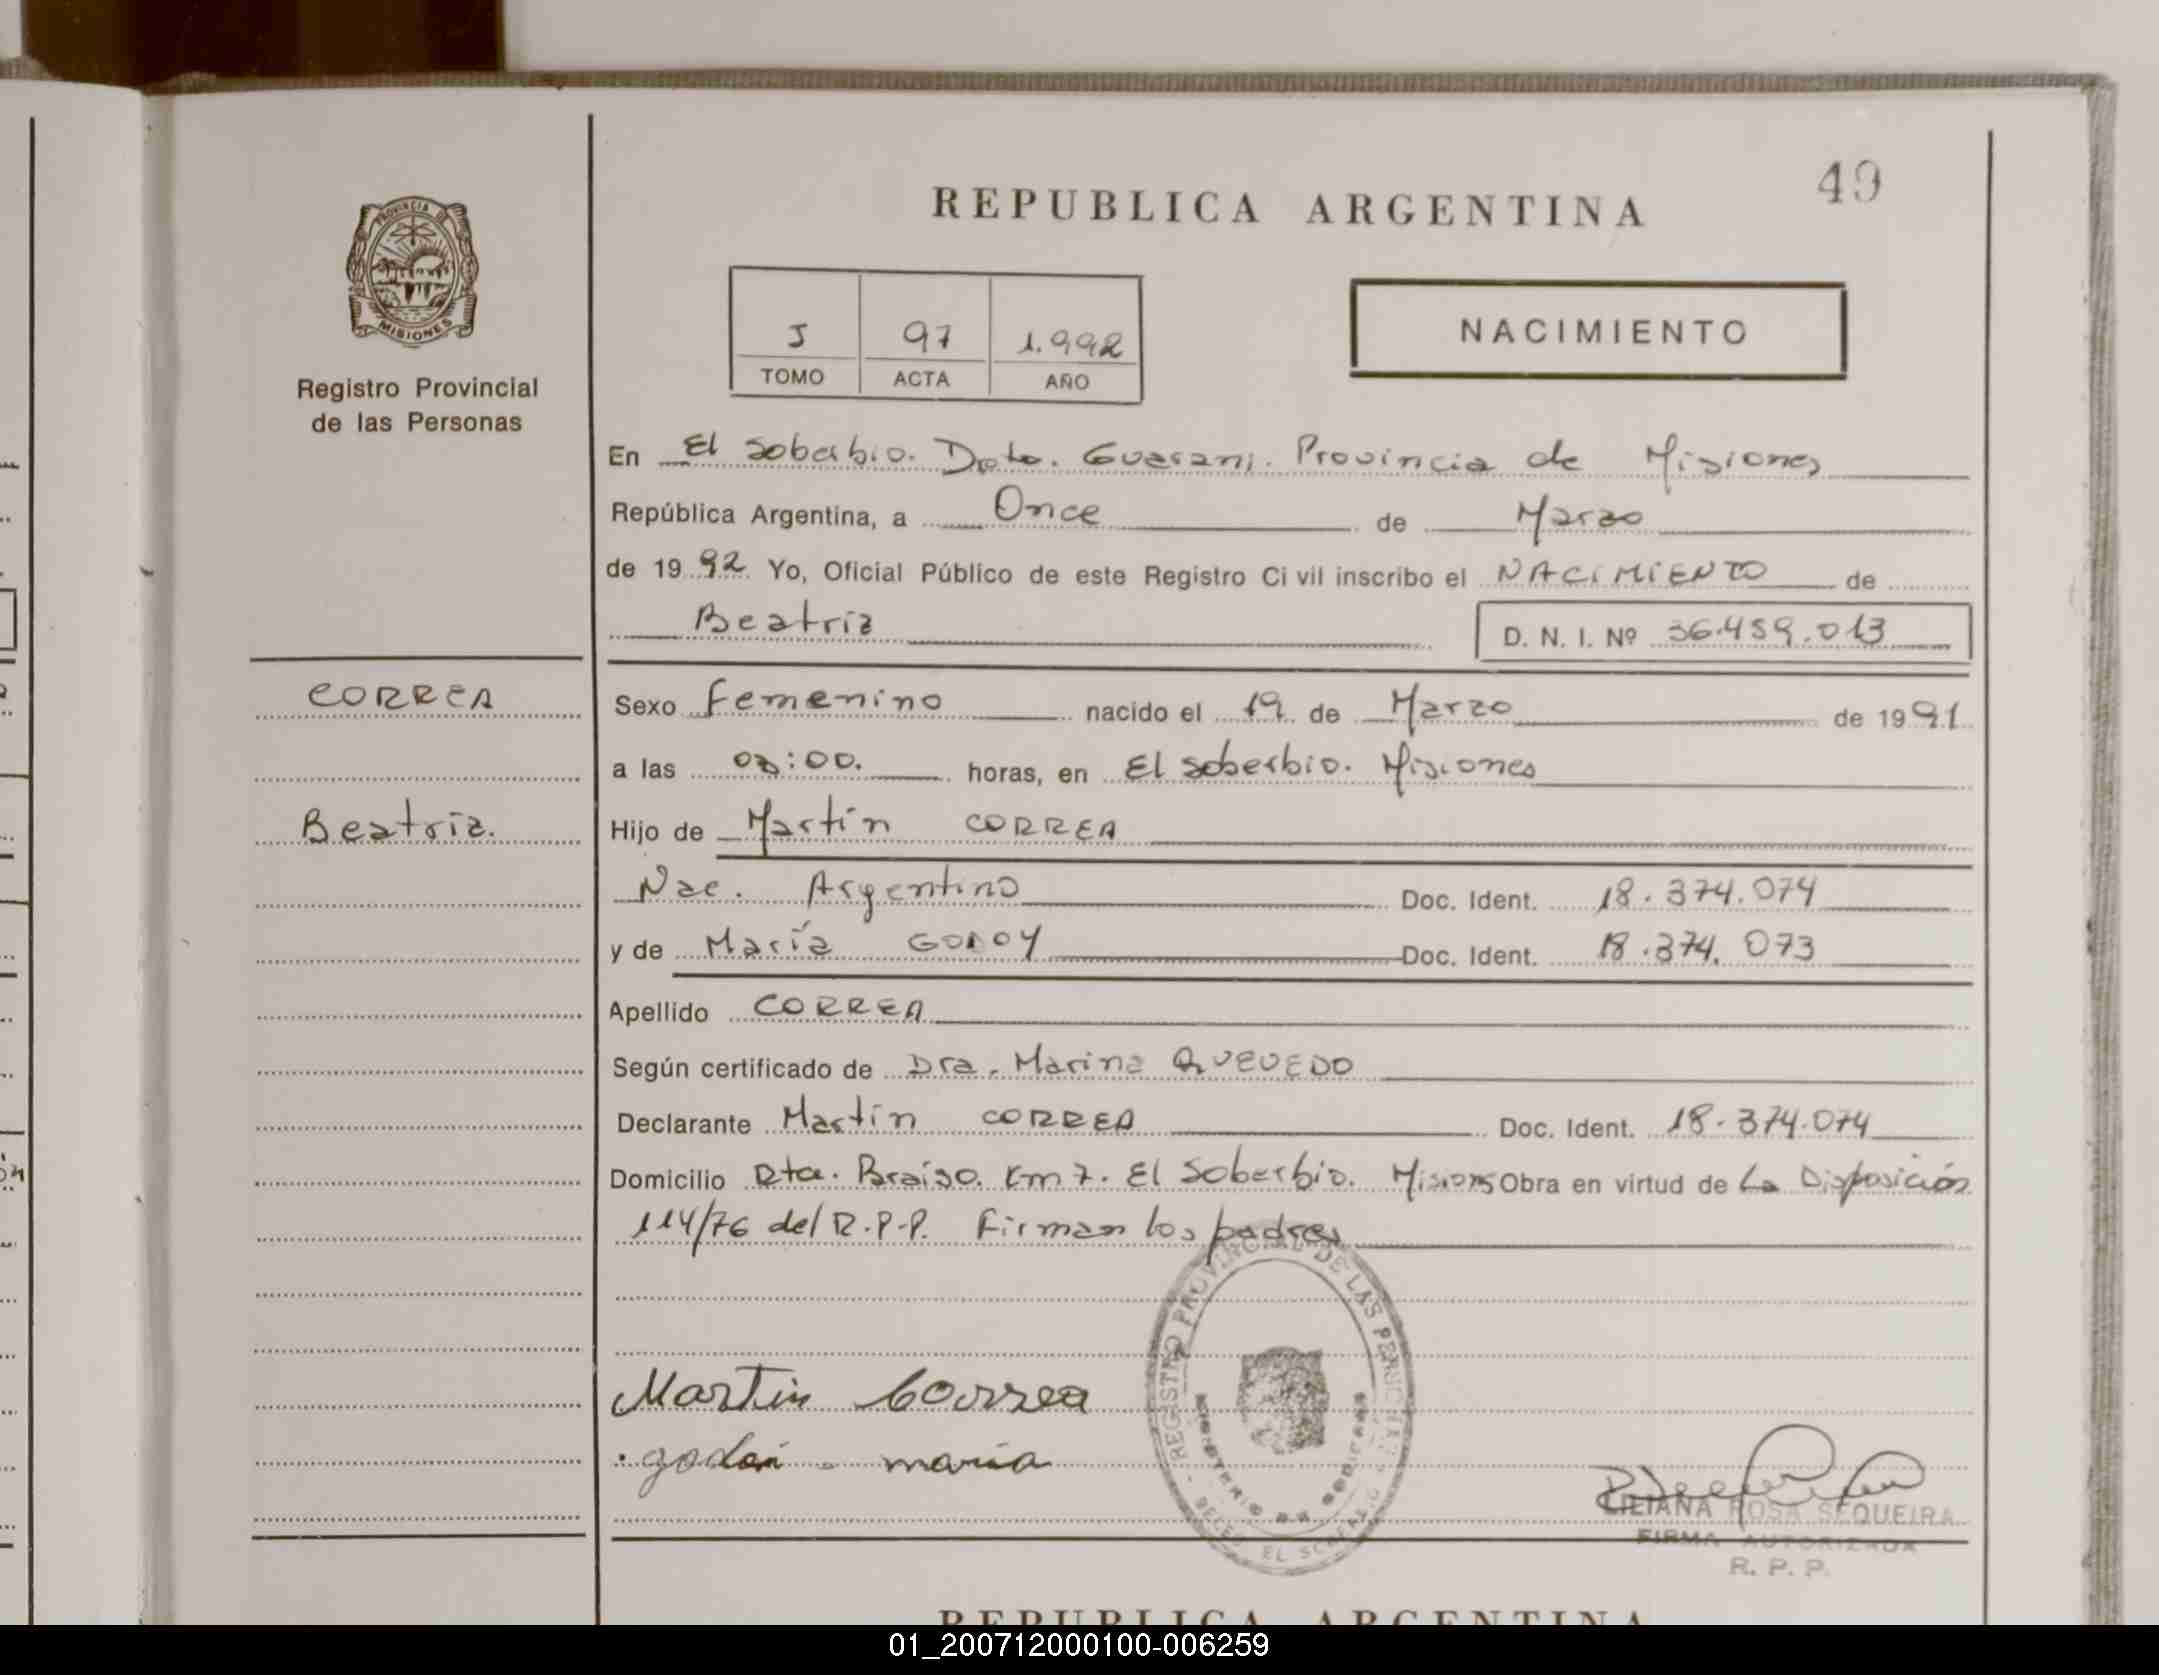 49
REPUBLICA ARGENTINA
PROVINCIA DE
MISIONES
Registro Provincial
de las Personas
J 97 1.992
TOMO ACTA AÑO
NACIMIENTO
En El Soberbio. Dpto. Guarani. Provincia de Misiones
República Argentina, a Once de Marzo
de 1992 Yo, Oficial Público de este Registro Civil inscribo el NACIMIENTO de
Beatriz D. N. I. Nº 36.459.013
CORREA
Sexo Femenino nacido el 19 de Marzo de 1991
a las :00. horas, en El Soberbio. Misiones
Beatriz.
Hijo de Martín CORREA
Nac. Argentino Doc. Ident. 18.374.074
y de María GODOY Doc. Ident. 18.374.073
Apellido CORREA
Según certificado de Dra. Marina QUEVEDO
Declarante Martín CORREA Doc. Ident. 18.374.074
Domicilio Rta. Braiso. Km 7. El Soberbio. Misions Obra en virtud de La Disposición
114/76 del R.P.P. Firman los padres
REGISTRO PROVINCIAL DE LAS PERSONAS
Martin Correa
maria
LILIANA ROSA SEQUEIRA
FIRMA AUTORIZADA
R. P. P.
REPUBLICA ARGENTINA
01_200712000100-006259